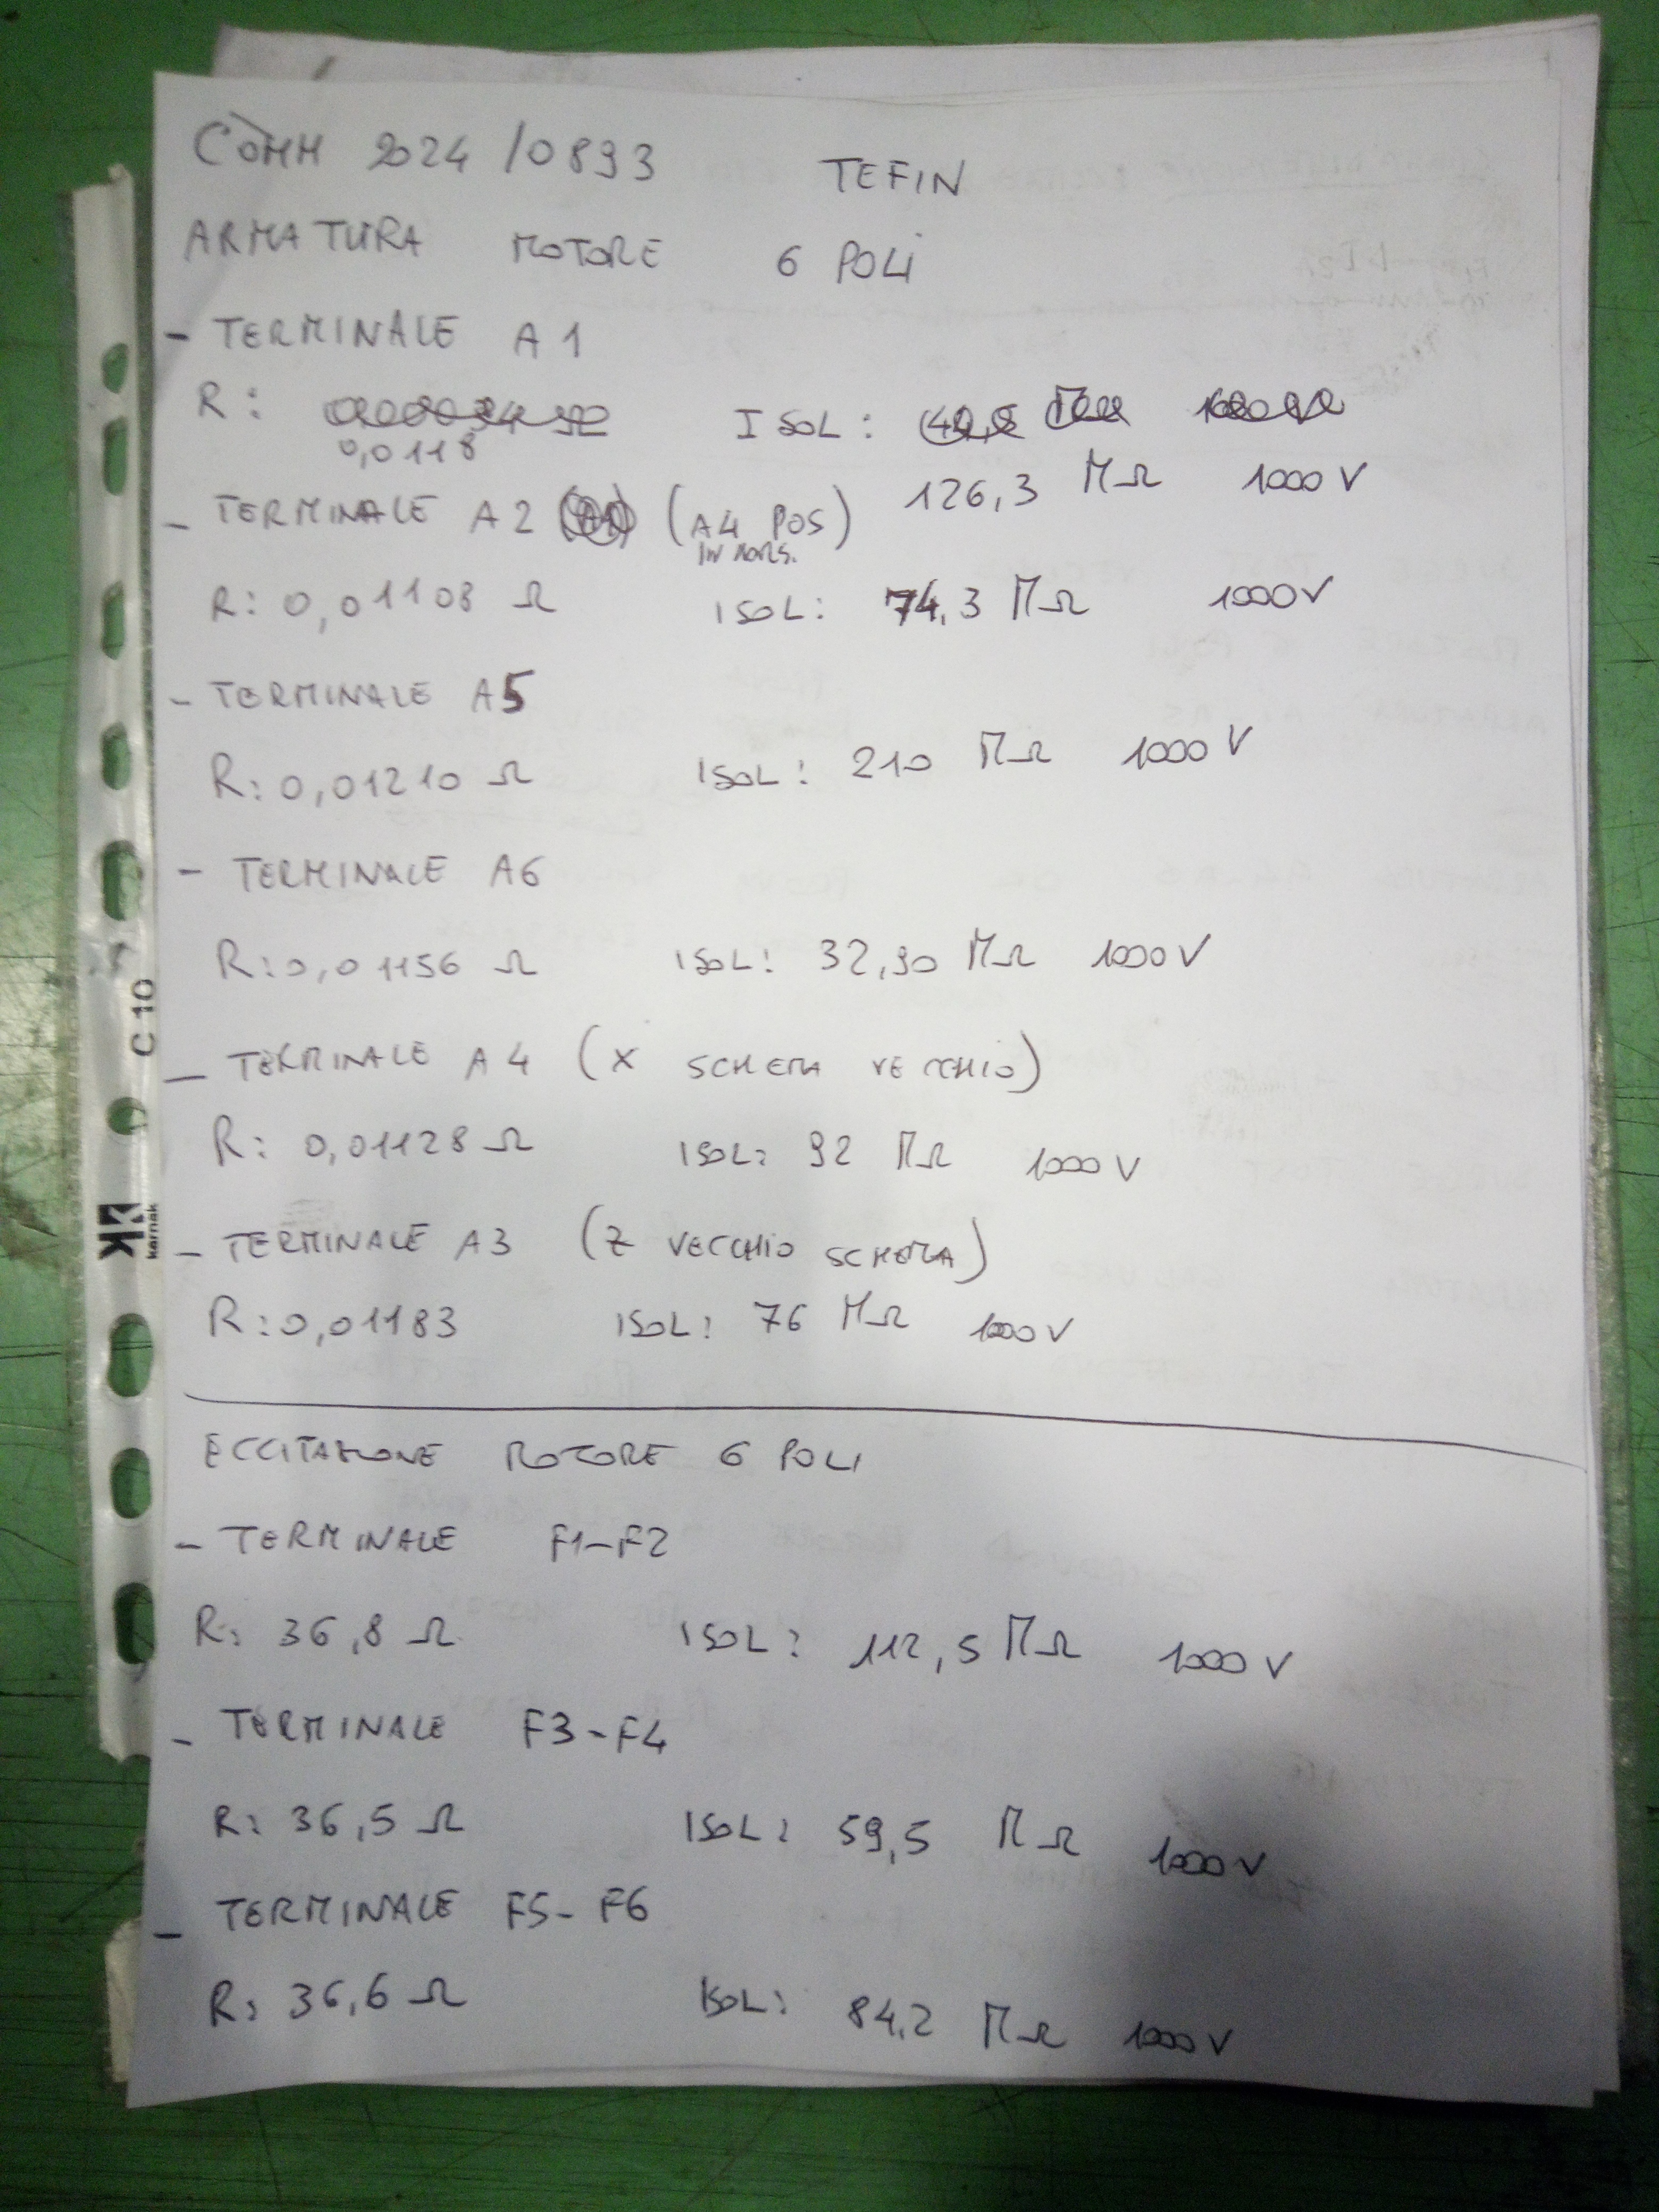 COMM 2024/0893 TEFIN
ARMATURA MOTORE 6 POLI
- TERMINALE A1
R: ISOL:
0,0118 126,3 MΩ 1000 V
- TERMINALE A2 (A4 POS)
IN MORS.
R: 0,01108 Ω ISOL: 74,3 MΩ 1000V
- TERMINALE A5
R: 0,01210 Ω ISOL: 210 MΩ 1000 V
- TERMINALE A6
R: 0,01156 Ω ISOL: 32,90 MΩ 1000 V
- TERMINALE A4 (X SCHEMA VECCHIO)
R: 0,01128 Ω ISOL: 92 MΩ 1000 V
- TERMINALE A3 (Z VECCHIO SCHEMA)
R: 0,01183 ISOL: 76 MΩ 1000 V
ECCITAZIONE MOTORE 6 POLI
- TERMINALE F1-F2
R: 36,8 Ω ISOL: 112,5 MΩ 1000 V
- TERMINALE F3-F4
R: 36,5 Ω ISOL: 59,5 MΩ 1000 V
- TERMINALE F5-F6
R: 36,6 Ω ISOL: 84,2 MΩ 1000 V
C 10
karnak